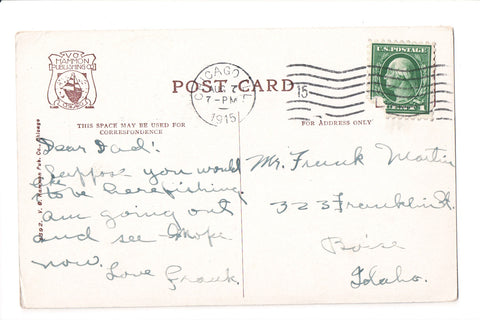 V.O.
HAMMON
PUBLISHING CO.
CHICAGO
7-PM
1915
15
U.S. POSTAGE
POST CARD
THIS SPACE MAY BE USED FOR
CORRESPONDENCE
FOR ADDRESS ONLY
V. O. Hammon Pub. Co., Chicago
Dear Dad:
Suppose you would
like to be here fishing.
am going out
and see
now.
Love Frank.
Mr. Frank Martin
323 Franklin St.
Boise
Idaho.